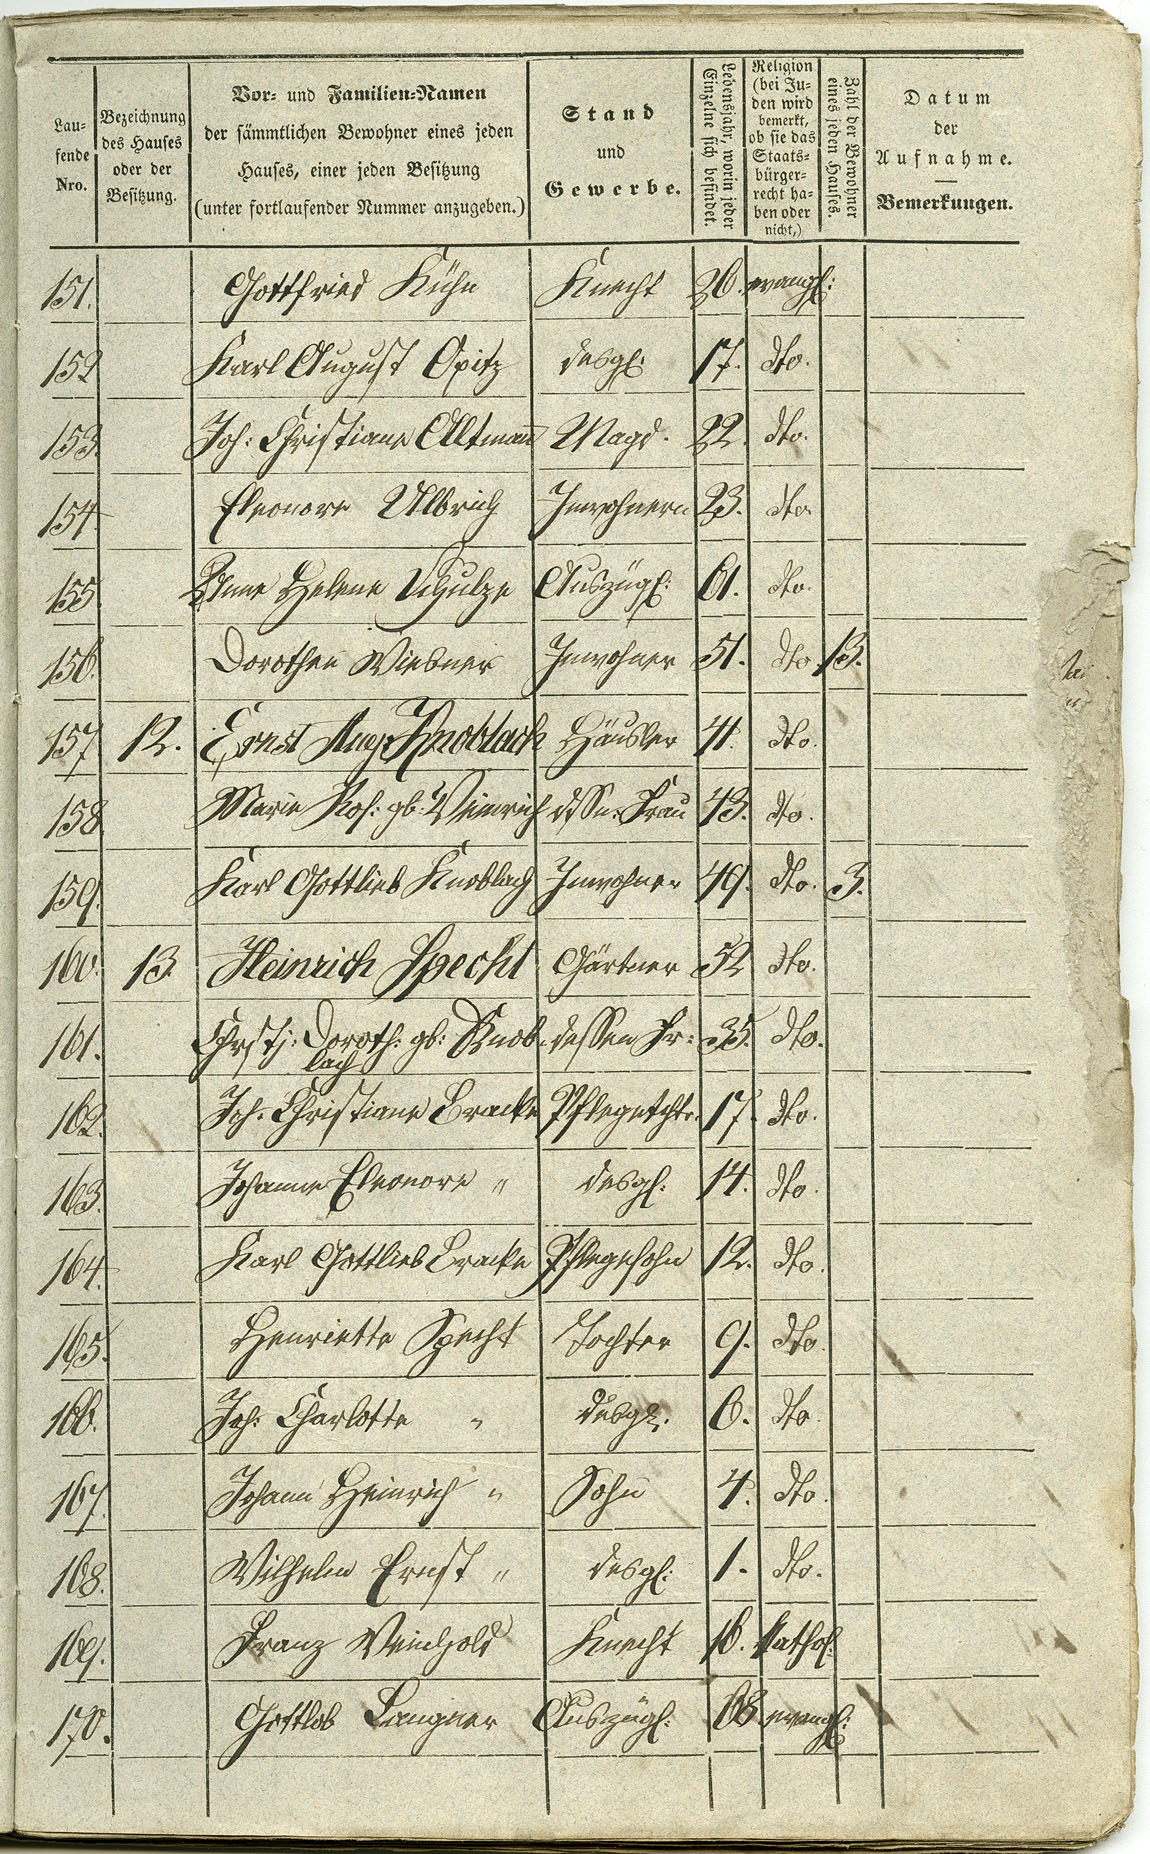 Lau-
fende
Nro.
Bezeichnung
des Hauses
oder der
Besitzung.
Vor- und Familien-Namen
der sämmtlichen Bewohner eines jeden
Hauses, einer jeden Besitzung
(unter fortlaufender Nummer anzugeben.)
Stand
und
Gewerbe.
Lebensjahr, worin jeder
Einzelne sich befindet.
Religion
(bei Ju-
den wird
bemerkt,
ob sie das
Staats-
bürger-
recht ha-
ben oder
nicht,)
Zahl der Bewohner
eines jeden Hauses.
Datum
der
Aufnahme.
Bemerkungen.
151. Gottfried Kühn Knecht 26. evangl:
152 Karl August Opitz desgl: 17. dto.
153. Joh: Christiane Altmann Magd. 22. dto.
154 Eleonore Ulbrich Inwohnern 23. dto.
155. Anne Helene Schulze Auszügl: 61. dto.
156. Dorothea Wiesner Inwohner 51. dto. 13.
157 12. Ernst Aug. Knoblach Häusler 41. dto.
158 Marie Ros: gb: Weinrich dssn. Frau 43. dto.
159. Karl Gottlieb Knoblach Inwohner 49. dto. 3.
160. 13. Heinrich Specht Gärtner 52 dto.
161. Chrsti: Doroth: gb: Knob- dessen Fr: 35. dto.
lach
162. Joh: Christiane Bracke Pflegetchtr. 17. dto.
163. Johanne Eleonore " desgl: 14. dto.
164. Karl Gottlieb Bracke Pflegesohn 12. dto.
165. Henriette Specht Tochter 9. dto.
166. Joh: Charlotte " desgl. 6. dto.
167. Johann Heinrich " Sohn 4. dto.
168. Wilhelm Ernst " desgl: 1. dto.
169. Franz Weinhold Knecht 16. kathol:
170. Gottlob Langner Auszügl: 68. evangl: